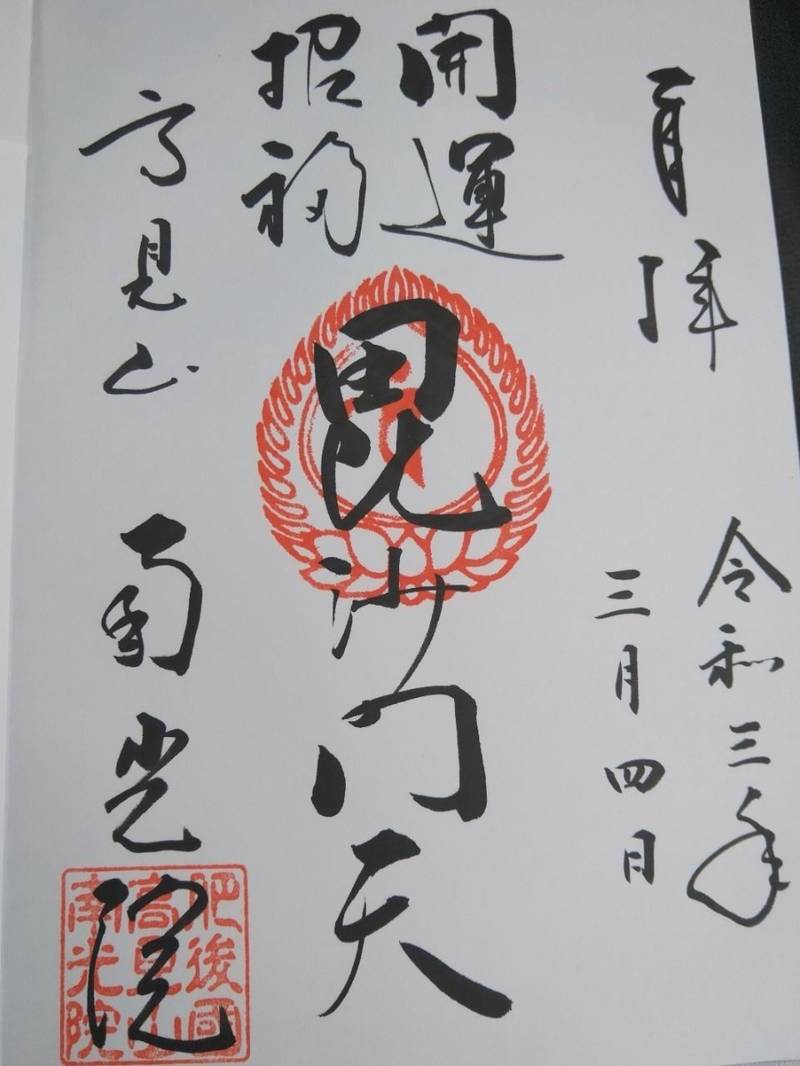 奉拝
令和三年
三月四日
開運
招福
毘沙門天
高見山
南光院
肥後國
高見山
南光院